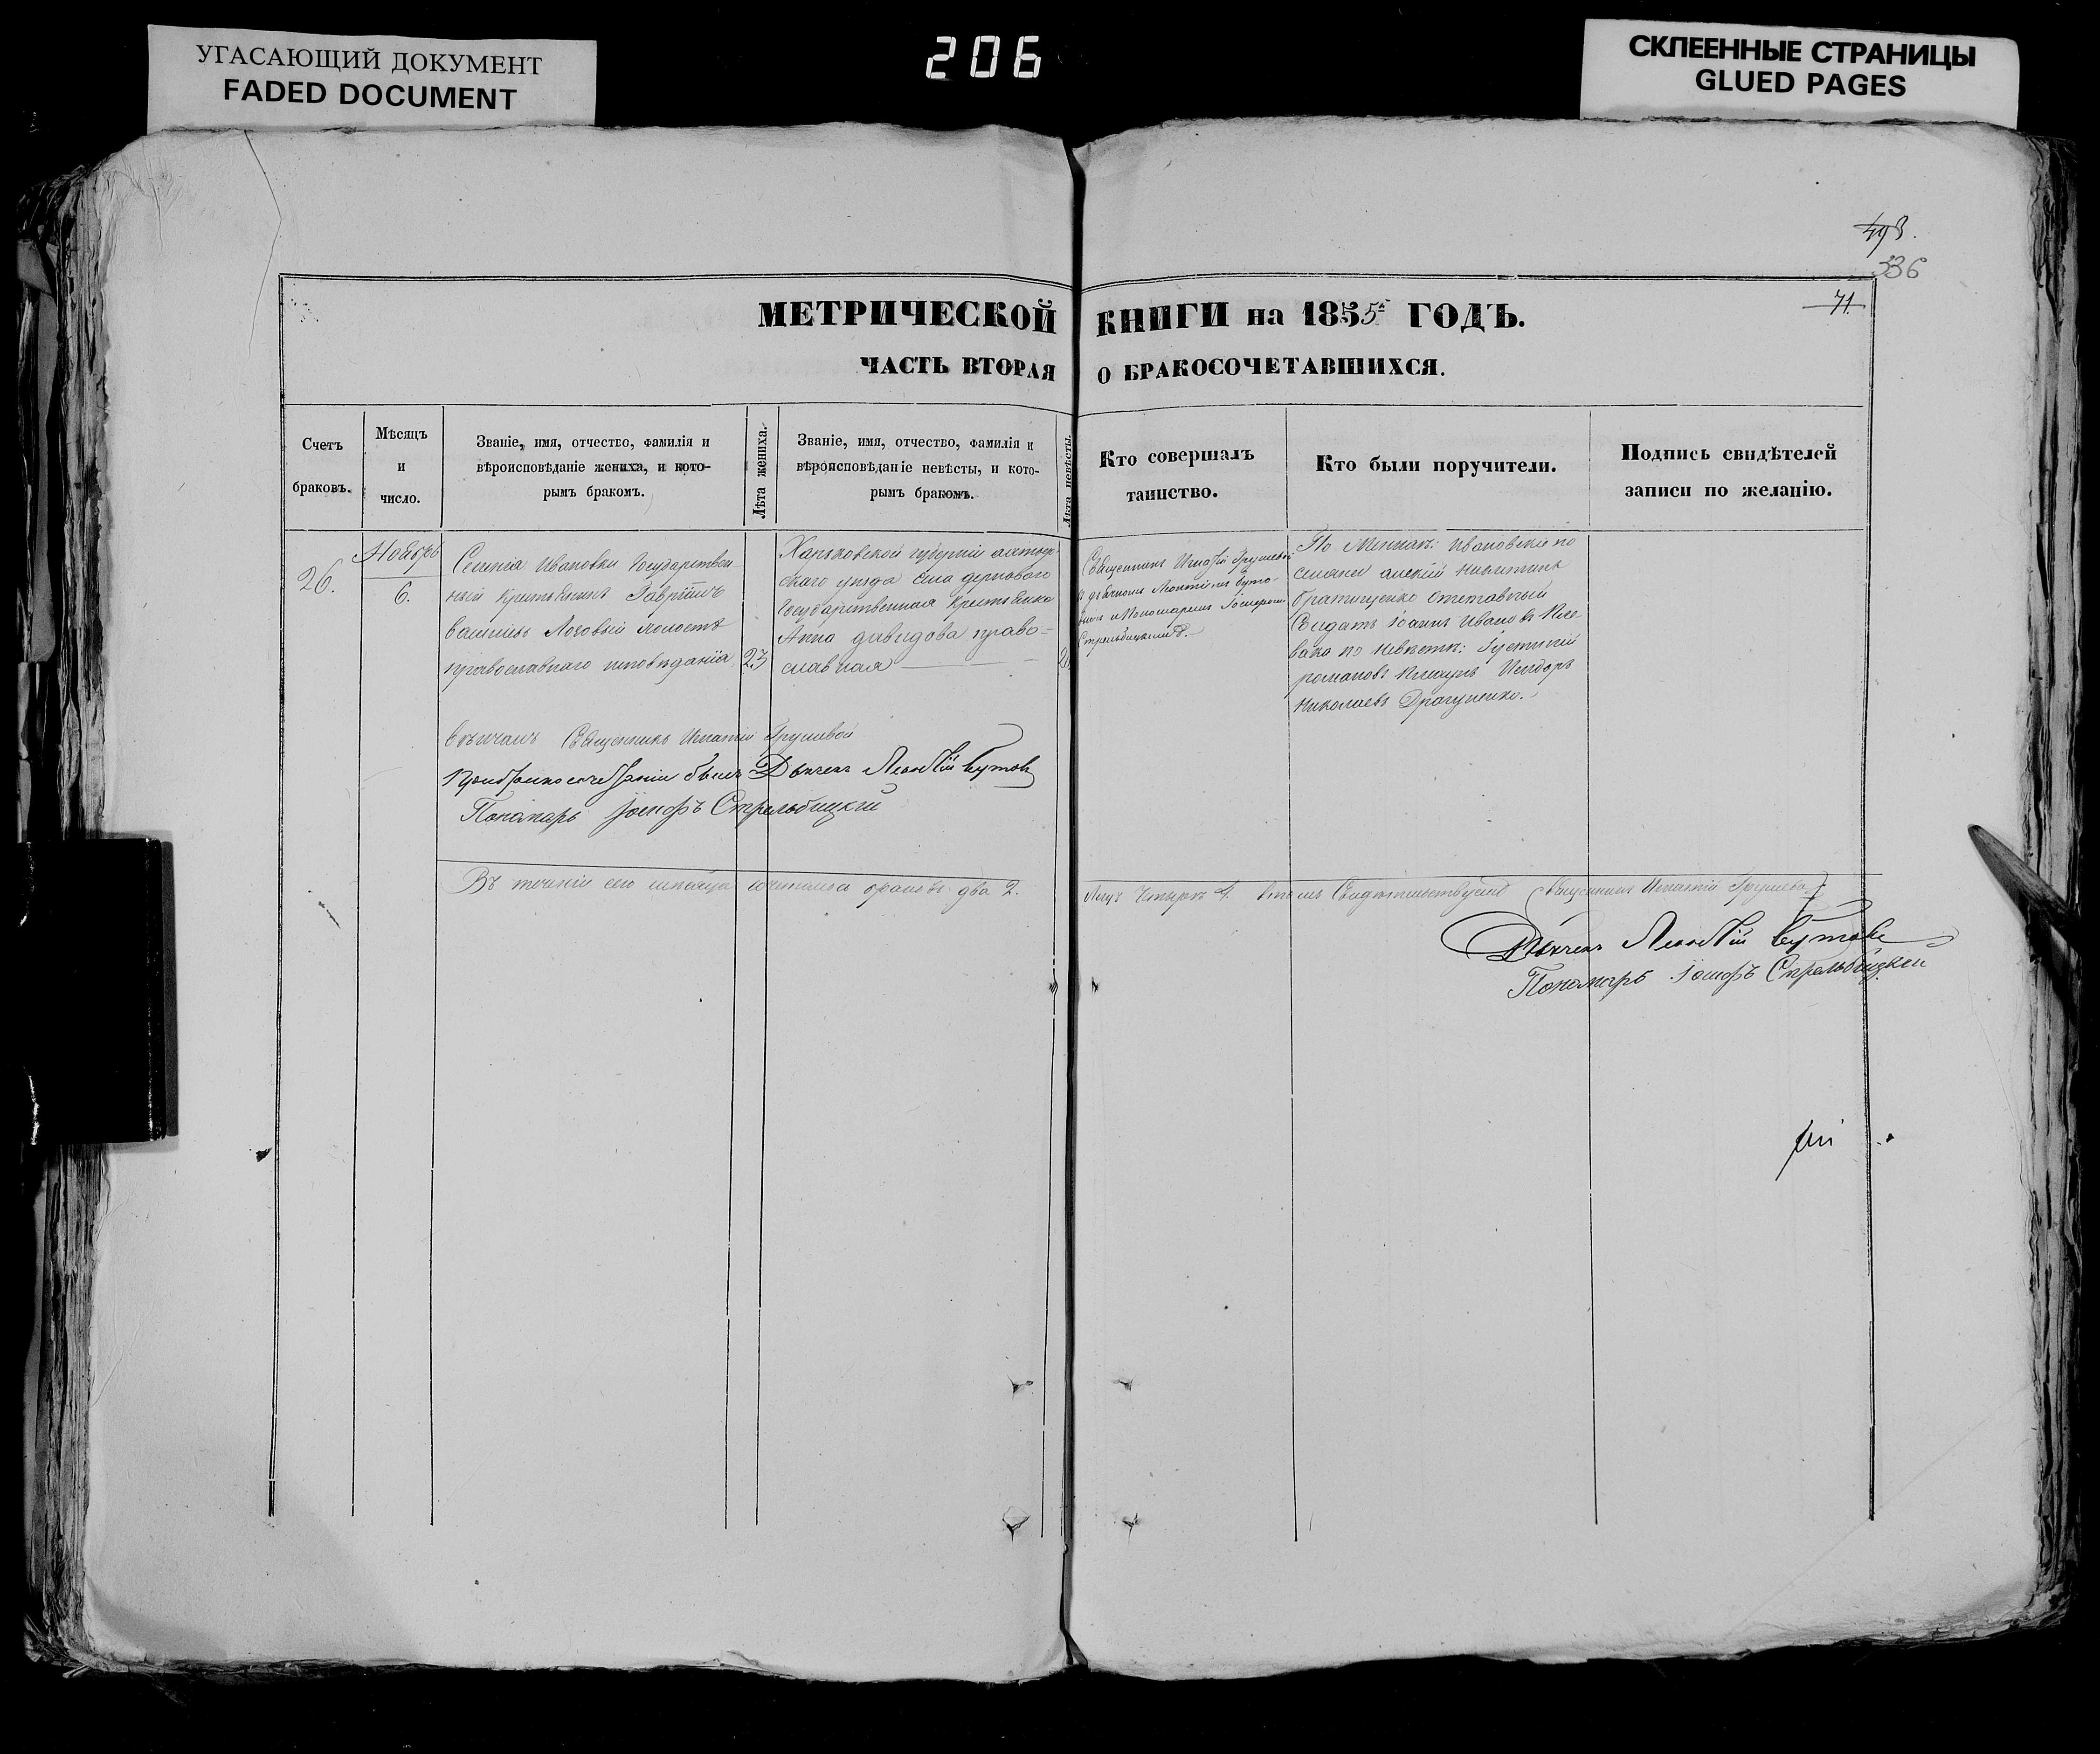 УГАСАЮЩИЙ ДОКУМЕНТ
FADED DOCUMENT
206
СКЛЕЕННЫЕ СТРАНИЦЫ
GLUED PAGES
493.
336
71.
МЕТРИЧЕСКОЙ КНИГИ на 1855 ГОДЪ.
ЧАСТЬ ВТОРАЯ О БРАКОСОЧЕТАВШИХСЯ.
Счетъ
браковъ.
Мѣсяцъ
и
число.
Званіе, имя, отчество, фамилія и
вѣроисповѣданіе жениха, и кото-
рымъ бракомъ.
Лѣта жениха.
Званіе, имя, отчество, фамилія и
вѣроисповѣданіе невѣсты, и кото-
рымъ бракомъ.
Лѣта невѣсты.
Кто совершалъ
таинство.
Кто были поручители.
Подпись свидѣтелей
записи по желанію.
26.
Ноябрь
6.
Селенія Ивановки Государствен
ный крестьянинъ Гавріилъ
Васильевъ Лозовый холостъ
православнаго исповѣданія
23
Харьковской губерніи ахтыр
скаго уѣзда села дерноваго
Государственная крестьянка
Анна давидова право=
славная
Священникъ Игнатій Грушевой
съ дьячкомъ Леонтіемъ Буто-
вымъ и Пономаремъ Іосифомъ
Стрельбицкимъ.
По Женихѣ: Ивановскіе по
селяне алексій никитинъ
Отставный
Солдатъ Іоаннъ Ивановъ
по невѣстѣ:
романовъ Исидоръ
Николаевъ Драгуненко.
вѣнчалъ Священникъ Игнатій Грушевой
При бракосочетаніи былъ Дьячекъ Леонтій Бутовъ
Понамарь Іосифъ Стрельбицкій
Въ теченіи сего мѣсяца сочеталося браковъ два 2.
Лицъ Четыре 4. въ томъ Свидѣтельствуемъ Священникъ Игнатій Грушевой
Дьячекъ Леонтій Бутовъ
Понамарь Іосифъ Стрельбицкій